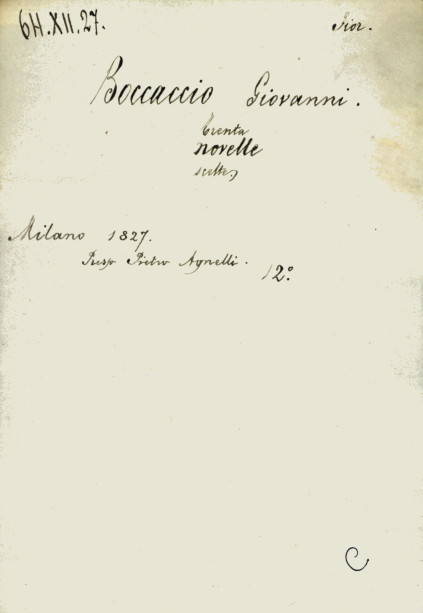 6H.XII.27.
Fior.
Boccaccio Giovanni.
trenta
novelle
scelte
Milano 1827.
Presso Pietro Agnelli.
12°
C